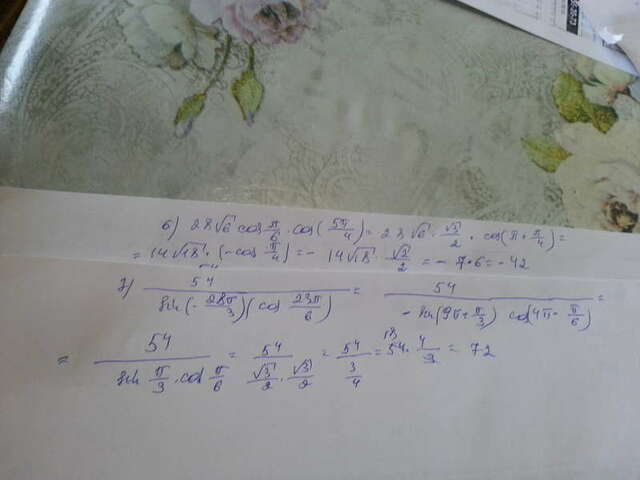 6) 28√6 cos π/6 · cos(5π/4) = 28√6 · √3/2 · cos(π + π/4) =
= 14√18 · (-cos π/4) = - 14√18 · √2/2 = - 7·6 = - 42
7) 54 / (sin(- 28π/3)(cos 23π/6)) = 54 / (- sin(9π + π/3) cos(4π - π/6)) =
= 54 / (sin π/3 · cos π/6) = 54 / (√3/2 · √3/2) = 54 / (3/4) = 54 · 4/3 = 72